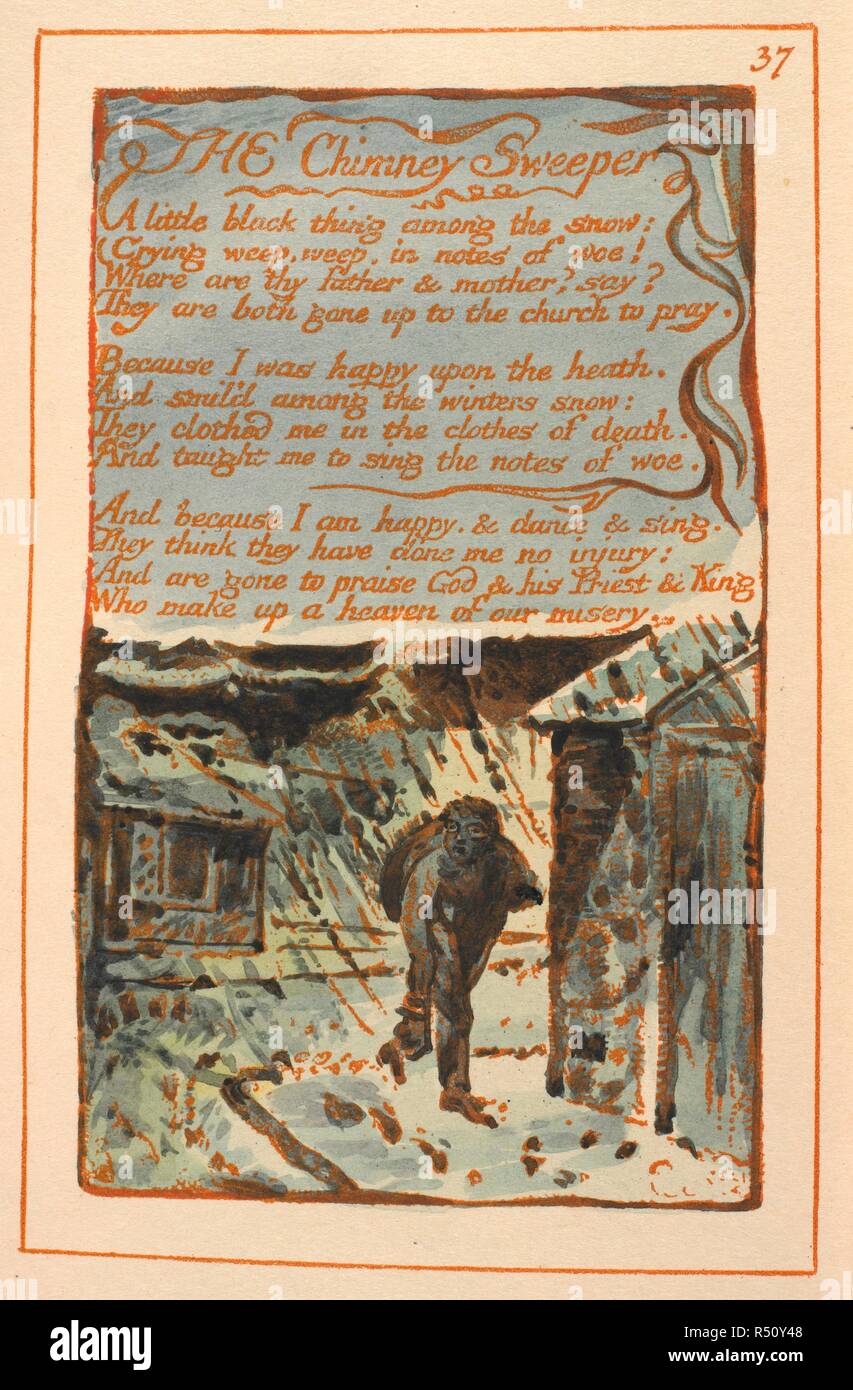 37
THE Chimney Sweeper
A little black thing among the snow:
Crying weep, weep, in notes of woe!
Where are thy father & mother? say?
They are both gone up to the church to pray.
Because I was happy upon the heath.
And smil'd among the winters snow:
They clothed me in the clothes of death.
And taught me to sing the notes of woe.
And because I am happy. & dance & sing.
They think they have done me no injury:
And are gone to praise God & his Priest & King
Who make up a heaven of our misery.
alamy
Image ID: R50Y48
www.alamy.com